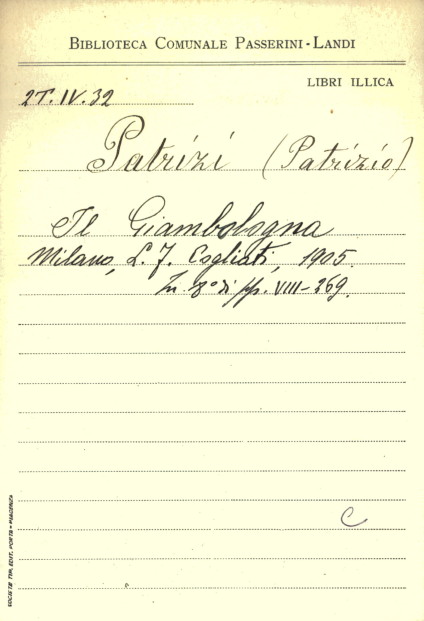 BIBLIOTECA COMUNALE PASSERINI-LANDI
LIBRI ILLICA
2T.IV.32
Patrizi (Patrizio)
Il Giambologna
Milano, L. F. Cogliati, 1905.
In 8° di pp. VIII-269.
C
SOCIETÀ TIP. EDIT. PORTA - PIACENZA